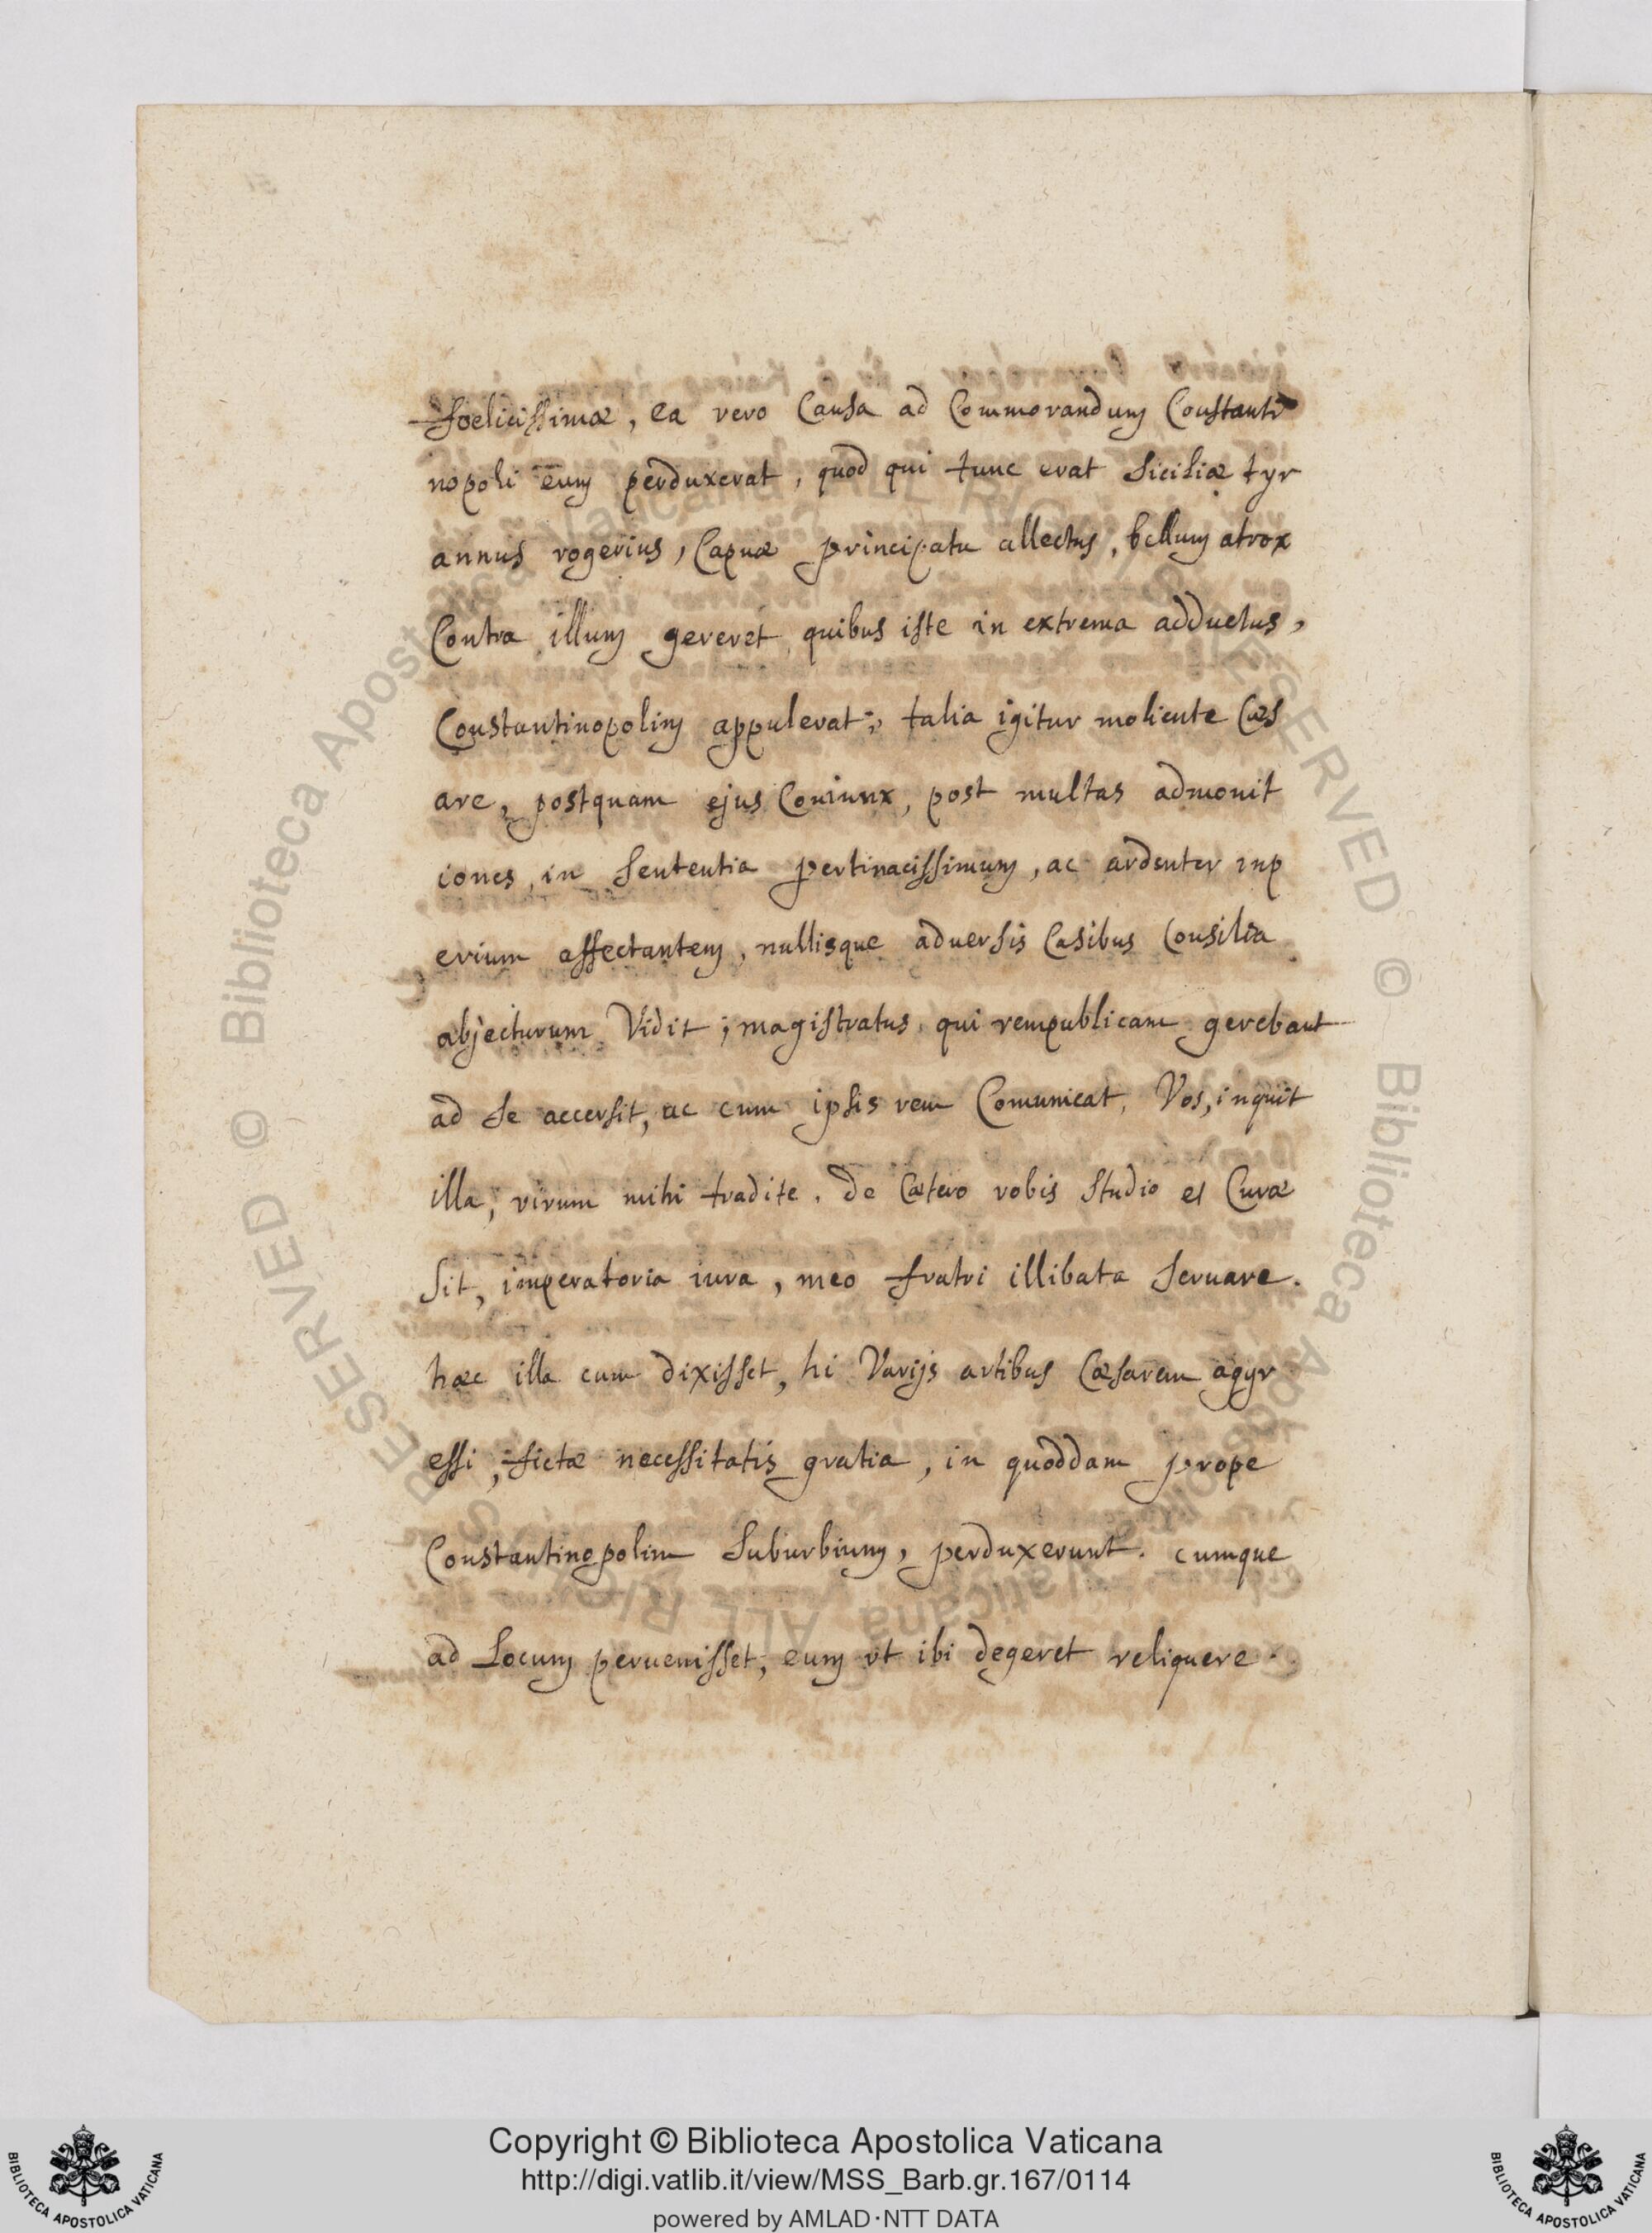 foelicissimæ, ea vero Causa ad Commorandum Constanti
nopoli eum perduxerat, quod qui tunc erat Siciliæ tyr
annus rogerius, Capuæ principatu allectus, bellum atrox
Contra illum gereret quibus iste in extrema adductus,
Constantinopolim appulerat; talia igitur moliente Cæs
are, postquam ejus Coniunx, post multas admonit
iones, in Sententia pertinacissimum, ac ardenter inp
erium affectantem, nullisque aduersis Casibus Consilia
abjecturum Vidit; magistratus qui rempublicam gerebant
ad se accersit, ac cum ipsis rem Comunicat, Vos, inquit
illa, virum mihi tradite. De Cætero vobis Studio et Curæ
Sit, imperatoria iura, meo fratri illibata Seruare.
hæc illa cum dixisset, hi Varijs artibus Cæsarem agyr
essi, fictæ necessitatis gratia, in quoddam prope
Constantinopolim Suburbium, perduxerunt. cumque
ad Locum peruenisset, eum vt ibi degeret reliquere.
Copyright © Biblioteca Apostolica Vaticana
http://digi.vatlib.it/view/MSS_Barb.gr.167/0114
powered by AMLAD·NTT DATA
BIBLIOTECA APOSTOLICA VATICANA
BIBLIOTECA APOSTOLICA VATICANA
© Biblioteca Apostolica Vaticana ALL RIGHTS RESERVED © Biblioteca Apostolica Vaticana ALL RIGHTS RESERVED